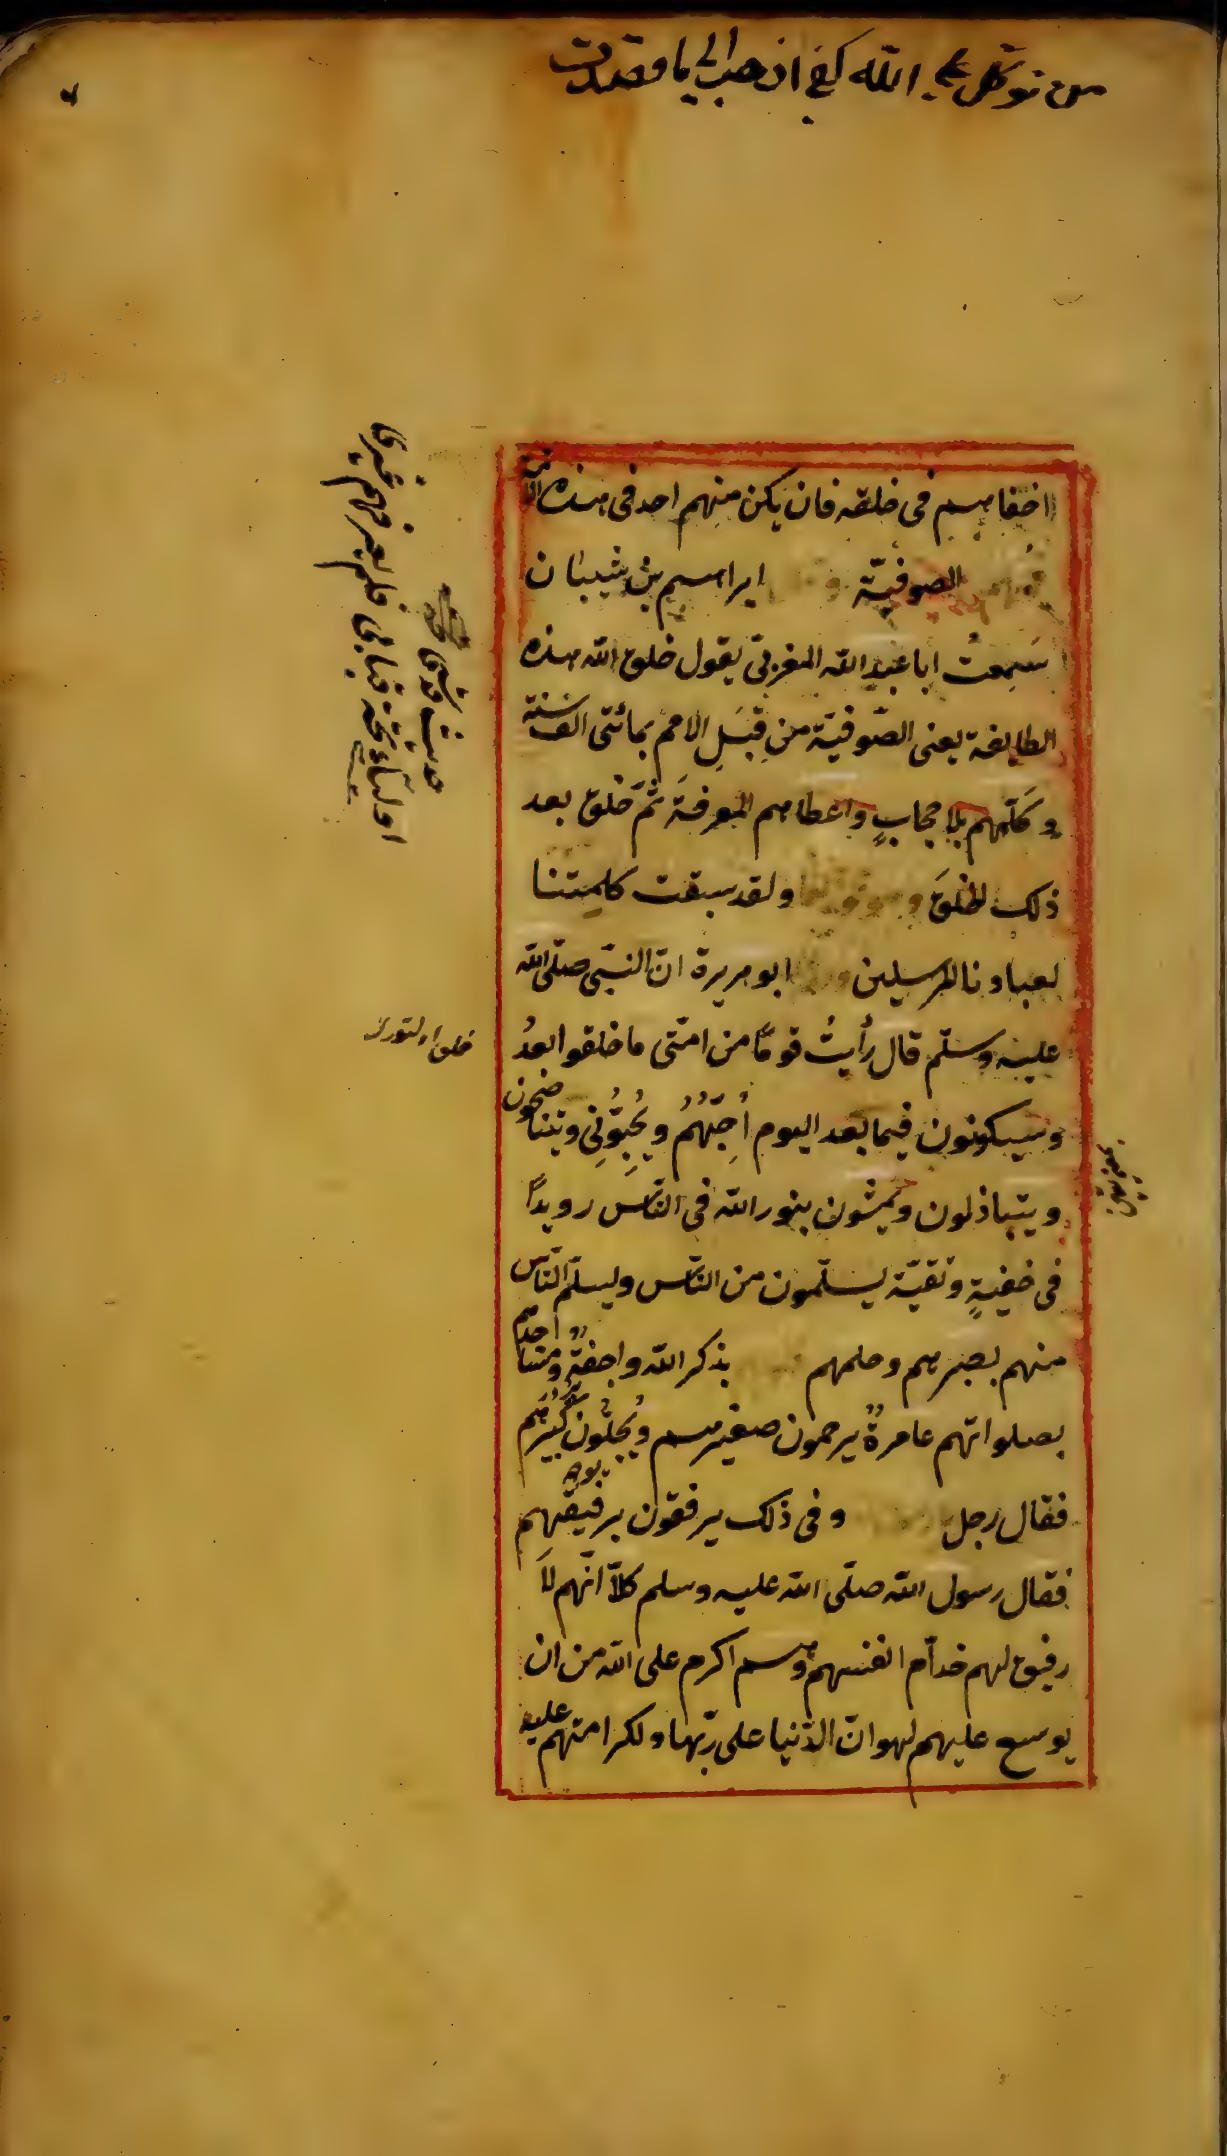 من توكل على الله كفى اذهب الى ما قصدت
اخفاهم فى خلقه فان يكن منهم احد فى هذه
الصوفيّة ابراهيم بن شيبان
سَمِعتُ ابا عبد الله المغربىّ يقول خلق الله هذه
الطايفة يعنى الصّوفيّة من قِبَلِ الامم بمائتى الف سَنَة
وكلّمهم بلا حجابٍ واعطاهم المعرفةَ ثمّ خلق بعد
ذلك الخلقَ ولقد سبقت كلمتنا
لعبادنا المرسلين ابو هريرة انّ النبىّ صلّى الله
عليه وسلّم قال رأيتُ قومًا من امّتى ما خلقوا بعدُ
وسيكونون فيما بعد اليوم اُحِبّهُمُ ويُحِبُّونِى ويتناصحون
ويتباذلون ويمشون بنور الله فى النّاس رويدًا
فى خفيةٍ وتقيّة يسلّمون من النّاس ويسلّم النّاس
منهم بصبرهم وحلمهم بذكر الله واجفةٌ
بصلواتهم عامرةٌ يرحمون صغيرهم ويُجلّون كبيرَهم
فقال رجل وفى ذلك يرفقون برفيقهم
فقال رسول الله صلّى الله عليه وسلم كلّا انّهم لَا
رفيق لهم خدّام انفسهم وهم اكرم على الله من ان
يوسع عليهم لهوان الدّنيا على ربّها ولكرامتهم عليه
حديث قدسى
اولياء تحت قبابى فلم يعرفهم غيرى